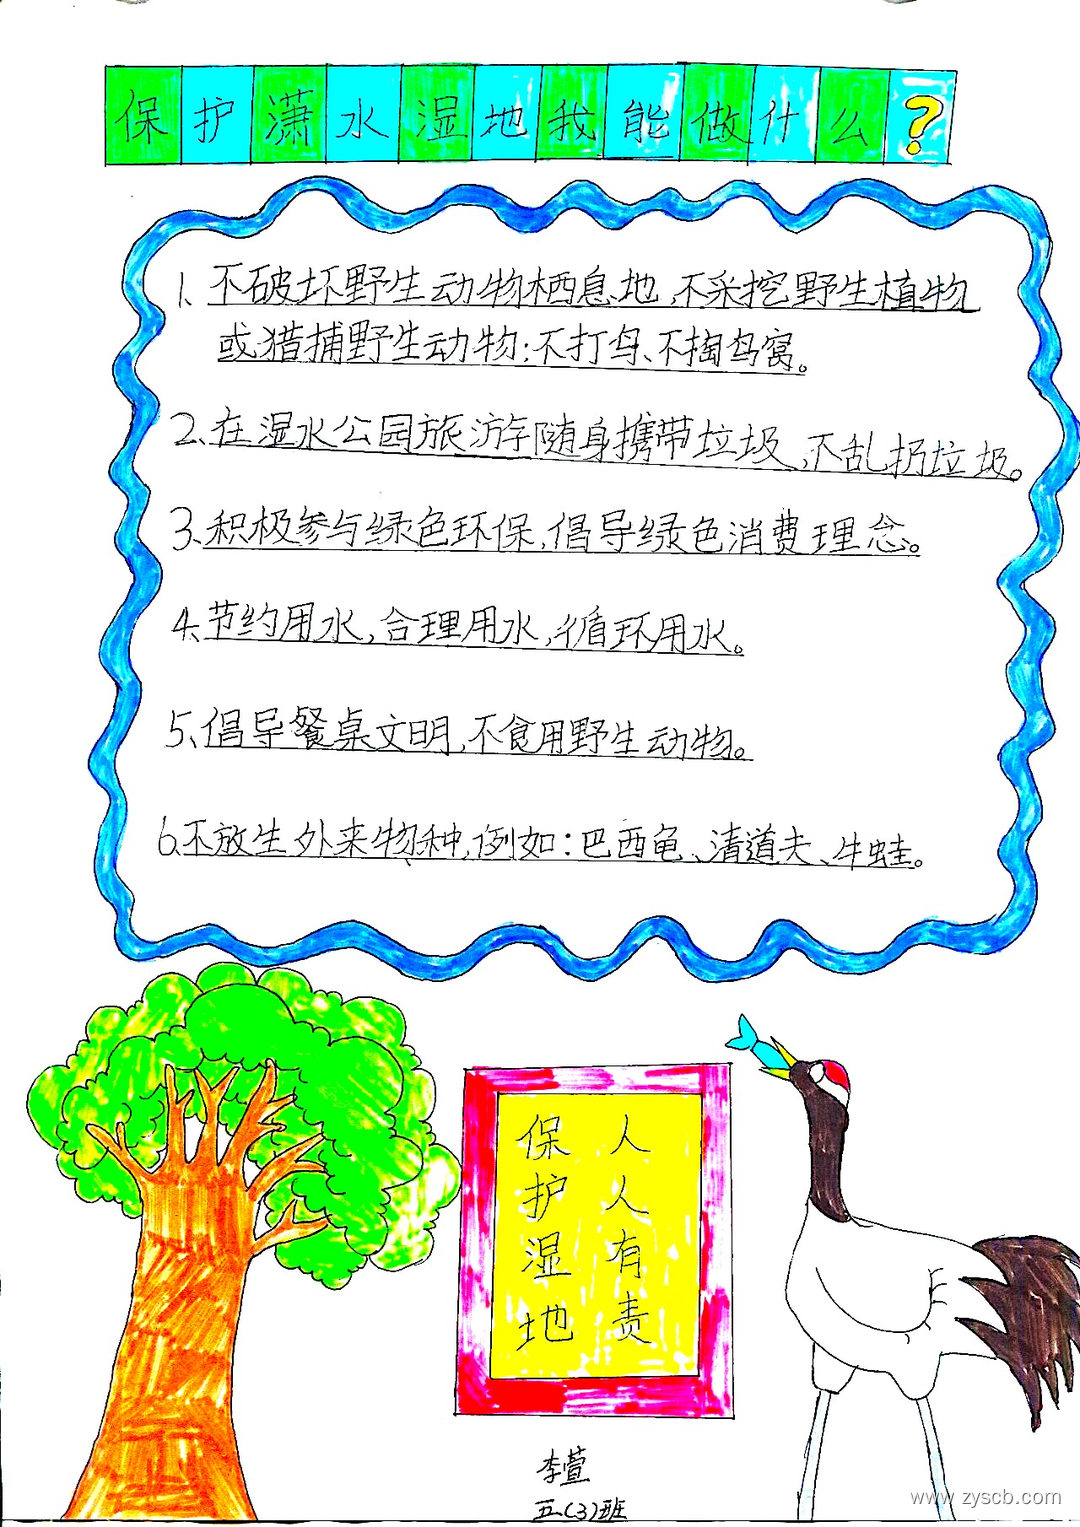 保护潇水湿地我能做什么?
1、不破坏野生动物栖息地,不采挖野生植物
或猎捕野生动物:不打鸟、不掏鸟窝。
2、在湿水公园旅游随身携带垃圾,不乱扔垃圾。
3、积极参与绿色环保,倡导绿色消费理念。
4、节约用水,合理用水,循环用水。
5、倡导餐桌文明,不食用野生动物。
6、不放生外来物种,例如:巴西龟、清道夫、牛蛙。
保护湿地
人人有责
李萱
五(3)班
www.zyscb.com